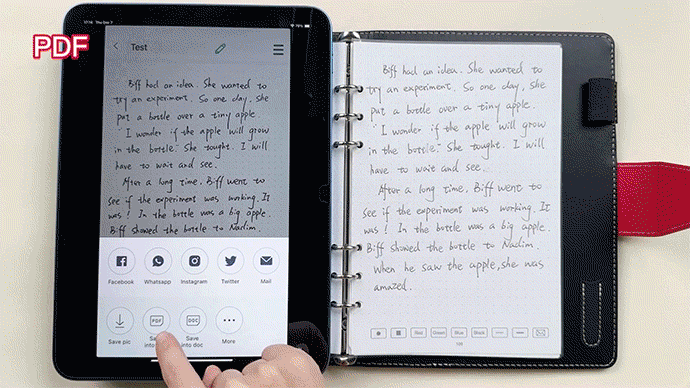 PDF
17:16 Thu Dec 7
Test
Biff had an idea. She wanted to
try an experiment. So one day, she
put a bottle over a tiny apple.
"I wonder if the apple will grow
in the bottle." She tought. I will
have to wait and see.
After a long time, Biff went to
see if the experiment was working. It
was! In the bottle was a big apple.
Biff showed the bottle to Nadim.
Facebook Whatsapp Instagram Twitter Mail
Save pic Save into doc More
PDF DOC
Biff had an idea. She wanted to
try an experiment. So one day, she
put a bottle over a tiny apple.
"I wonder if the apple will grow
in the bottle." She tought. I will
have to wait and see.
After a long time, Biff went to
see if the experiment was working. It
was! In the bottle was a big apple.
Biff showed the bottle to Nadim.
When he saw the apple, she was
amazed.
Red Green Blue Black